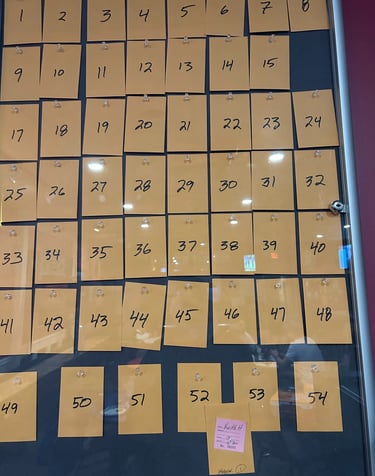 1 2 3 4 5 6 7 8
9 10 11 12 13 14 15
17 18 19 20 21 22 23 24
25 26 27 28 29 30 31 32
33 34 35 36 37 38 39 40
41 42 43 44 45 46 47 48
49 50 51 52 53 54